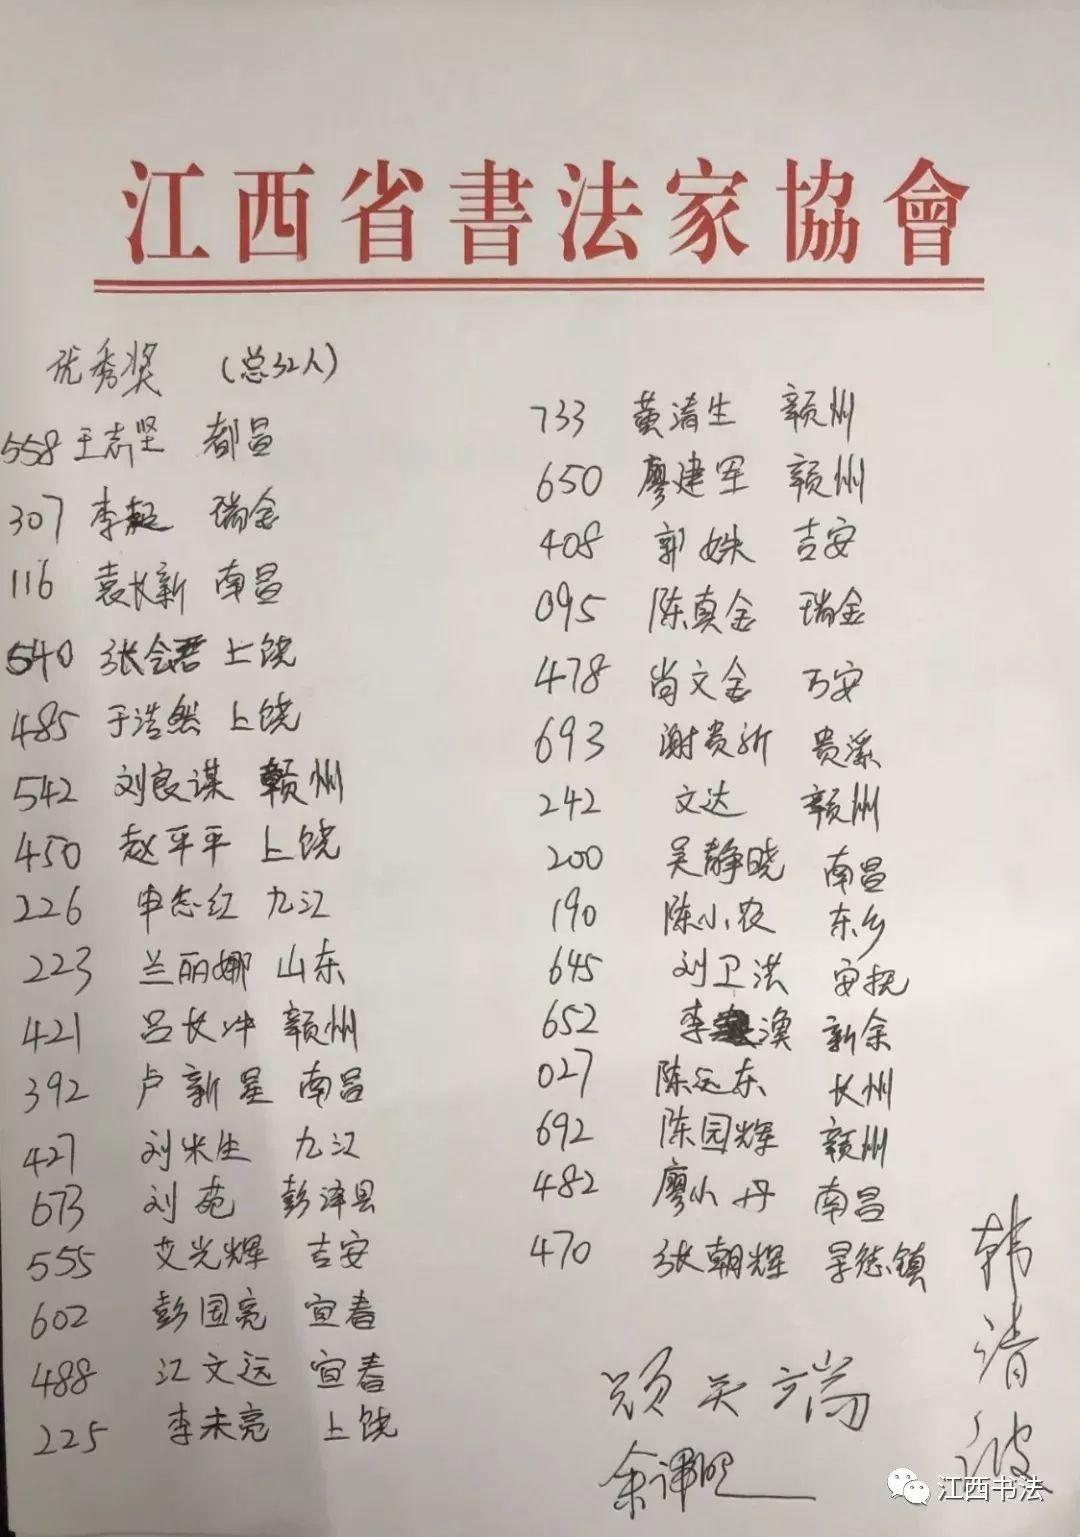 江西省書法家協會
优秀奖 (总32人)
558 王志坚 都昌
307 李超 瑞金
116 袁长新 南昌
540 张会君 上饶
485 于浩然 上饶
542 刘良谋 赣州
450 赵平平 上饶
226 申志红 九江
223 兰丽娜 山东
421 吕长冲 赣州
392 卢新星 南昌
427 刘米生 九江
673 刘苑 彭泽县
555 艾光辉 吉安
602 彭国亮 宜春
488 江文远 宜春
225 李未亮 上饶
733 黄清生 赣州
650 廖建军 赣州
408 郭姝 吉安
095 陈真金 瑞金
478 尚文金 万安
693 谢贵新 贵溪
242 文达 赣州
200 吴静晓 南昌
190 陈小农 东乡
645 刘卫洪 安抚
652 李漠 新余
027 陈远东 长州
692 陈园辉 赣州
482 廖小丹 南昌
470 张朝辉 景德镇
韩清波
江西书法